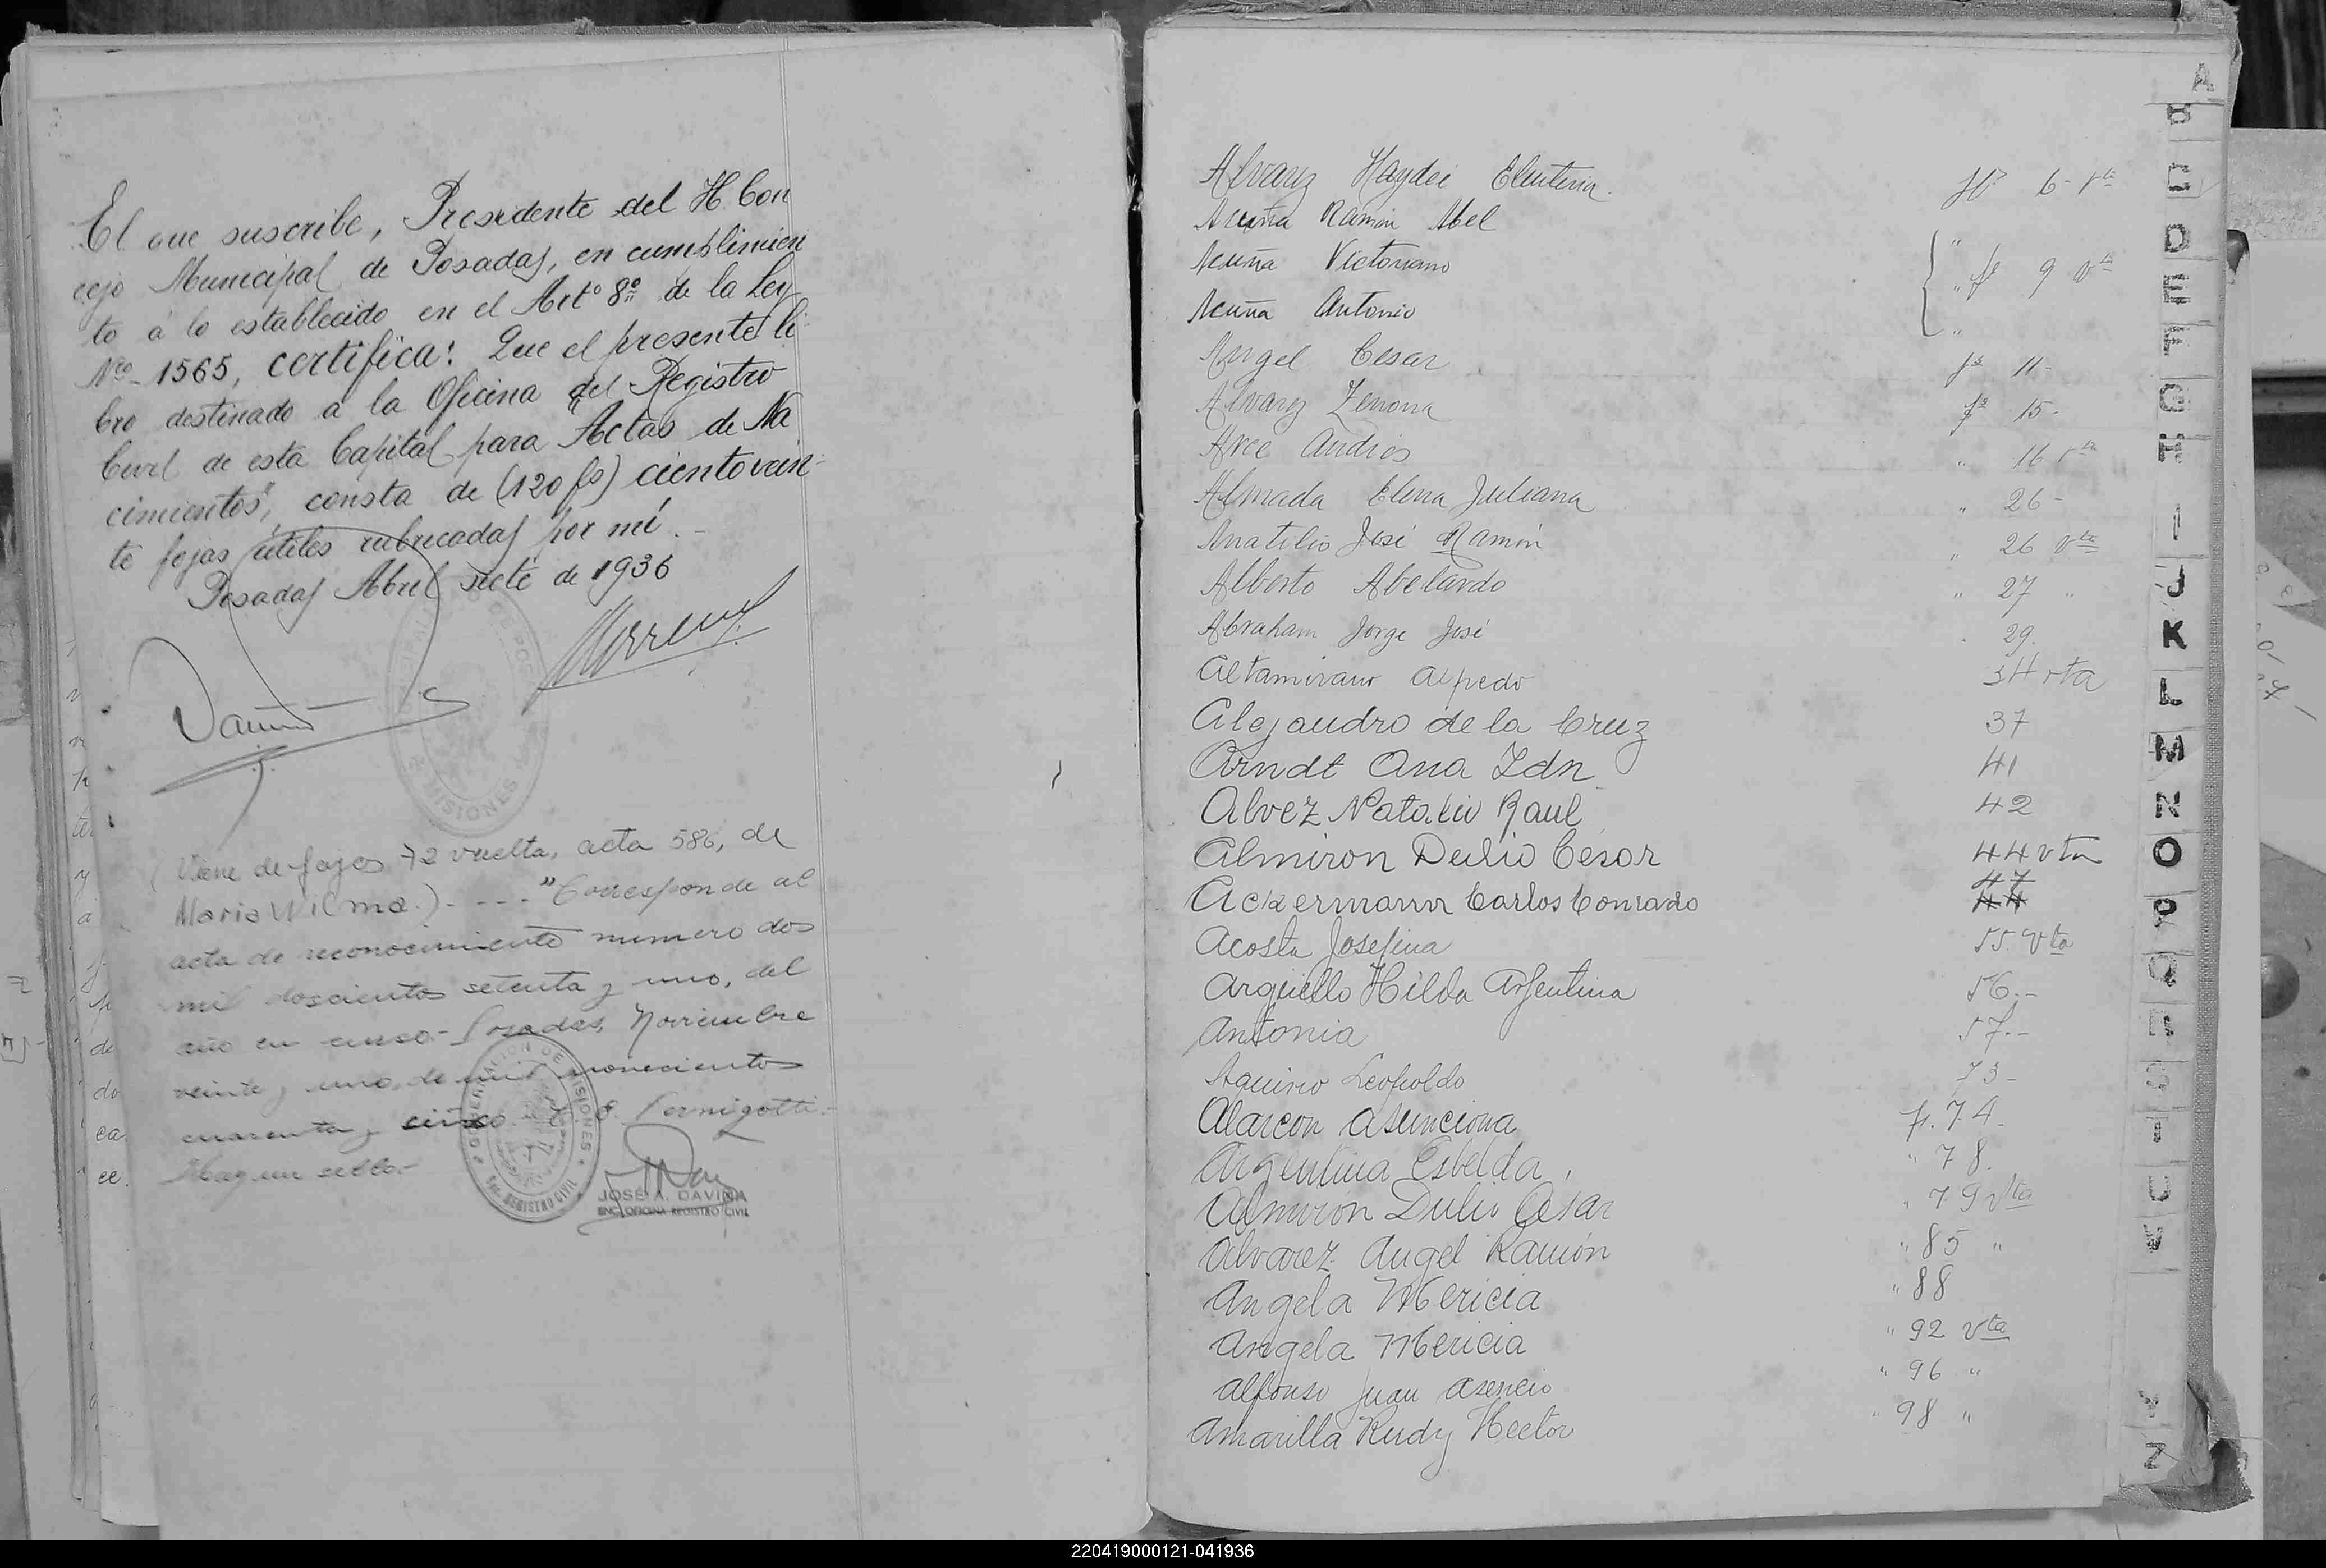 El que suscribe, Presidente del H. Con
cejo Municipal de Posadas, en cumplimien
to á lo establecido en el Artº 8º de la Ley
Nro. 1565, certifica: Que el presente li-
bro destinado a la Oficina del Registro
Civil de esta Capital para "Actas de Na
cimientos", consta de (120 fs) cientovein-
te fojas útiles rubricadas por mí.-
Posadas Abril siete de 1936
MISIONES
(Viene de fojas 72 vuelta, acta 586, de
Maria Wilma.)- - - - "Corresponde al
acta de reconocimiento numero dos
mil doscientos setenta y uno, del
año en curso.- Posadas, Noviembre
veinte y uno, de mil novecientos
cuarenta y cinco.
Hay un sello.-
GOBERNACION DE MISIONES
REGISTRO CIVIL
JOSÉ A. DAVIÑA
ENC. OFICINA REGISTRO CIVIL
Alvarez Haydée Eleuteria. 6 vta
Acuña Ramón Abel "
Acuña Victoriano " fs 9 vta
Acuña Antonio "
Angel Cesar fs 11-
Alvarez Zenona fs 15-
Arce Andrés " 16 vta
Almada Elena Juliana " 26-
Anatilio José Ramón " 26 vta
Alberto Abelardo " 27 "
Abraham Jorge José 29.
Altamirano Alfredo 34 vta
Alejandro de la Cruz 37
Arndt Ana Ida 41
Alvez Natalio Raul 42
Almiron Dulio Cesar 44 vta
Ackermann Carlos Conrado 47 44
Acosta Josefina 55. Vta
Argüello Hilda Argentina 56.-
Antonia 57.-
Aquino Leopoldo 73-
Alarcon Asunciona f. 74-
Argentina Esbelda " 78.
Almirón Dulio César " 79 vta
Alvarez Angel Ramón " 85 "
Angela Mericia " 88
Angela Mericia " 92 vta
Alfonso Juan Asencio " 96 "
Amarilla Rudy Hector " 98 "
A
B
C
D
E
F
G
H
I
J
K
L
M
N
O
P
Q
R
S
T
U
V
Y
Z
220419000121-041936